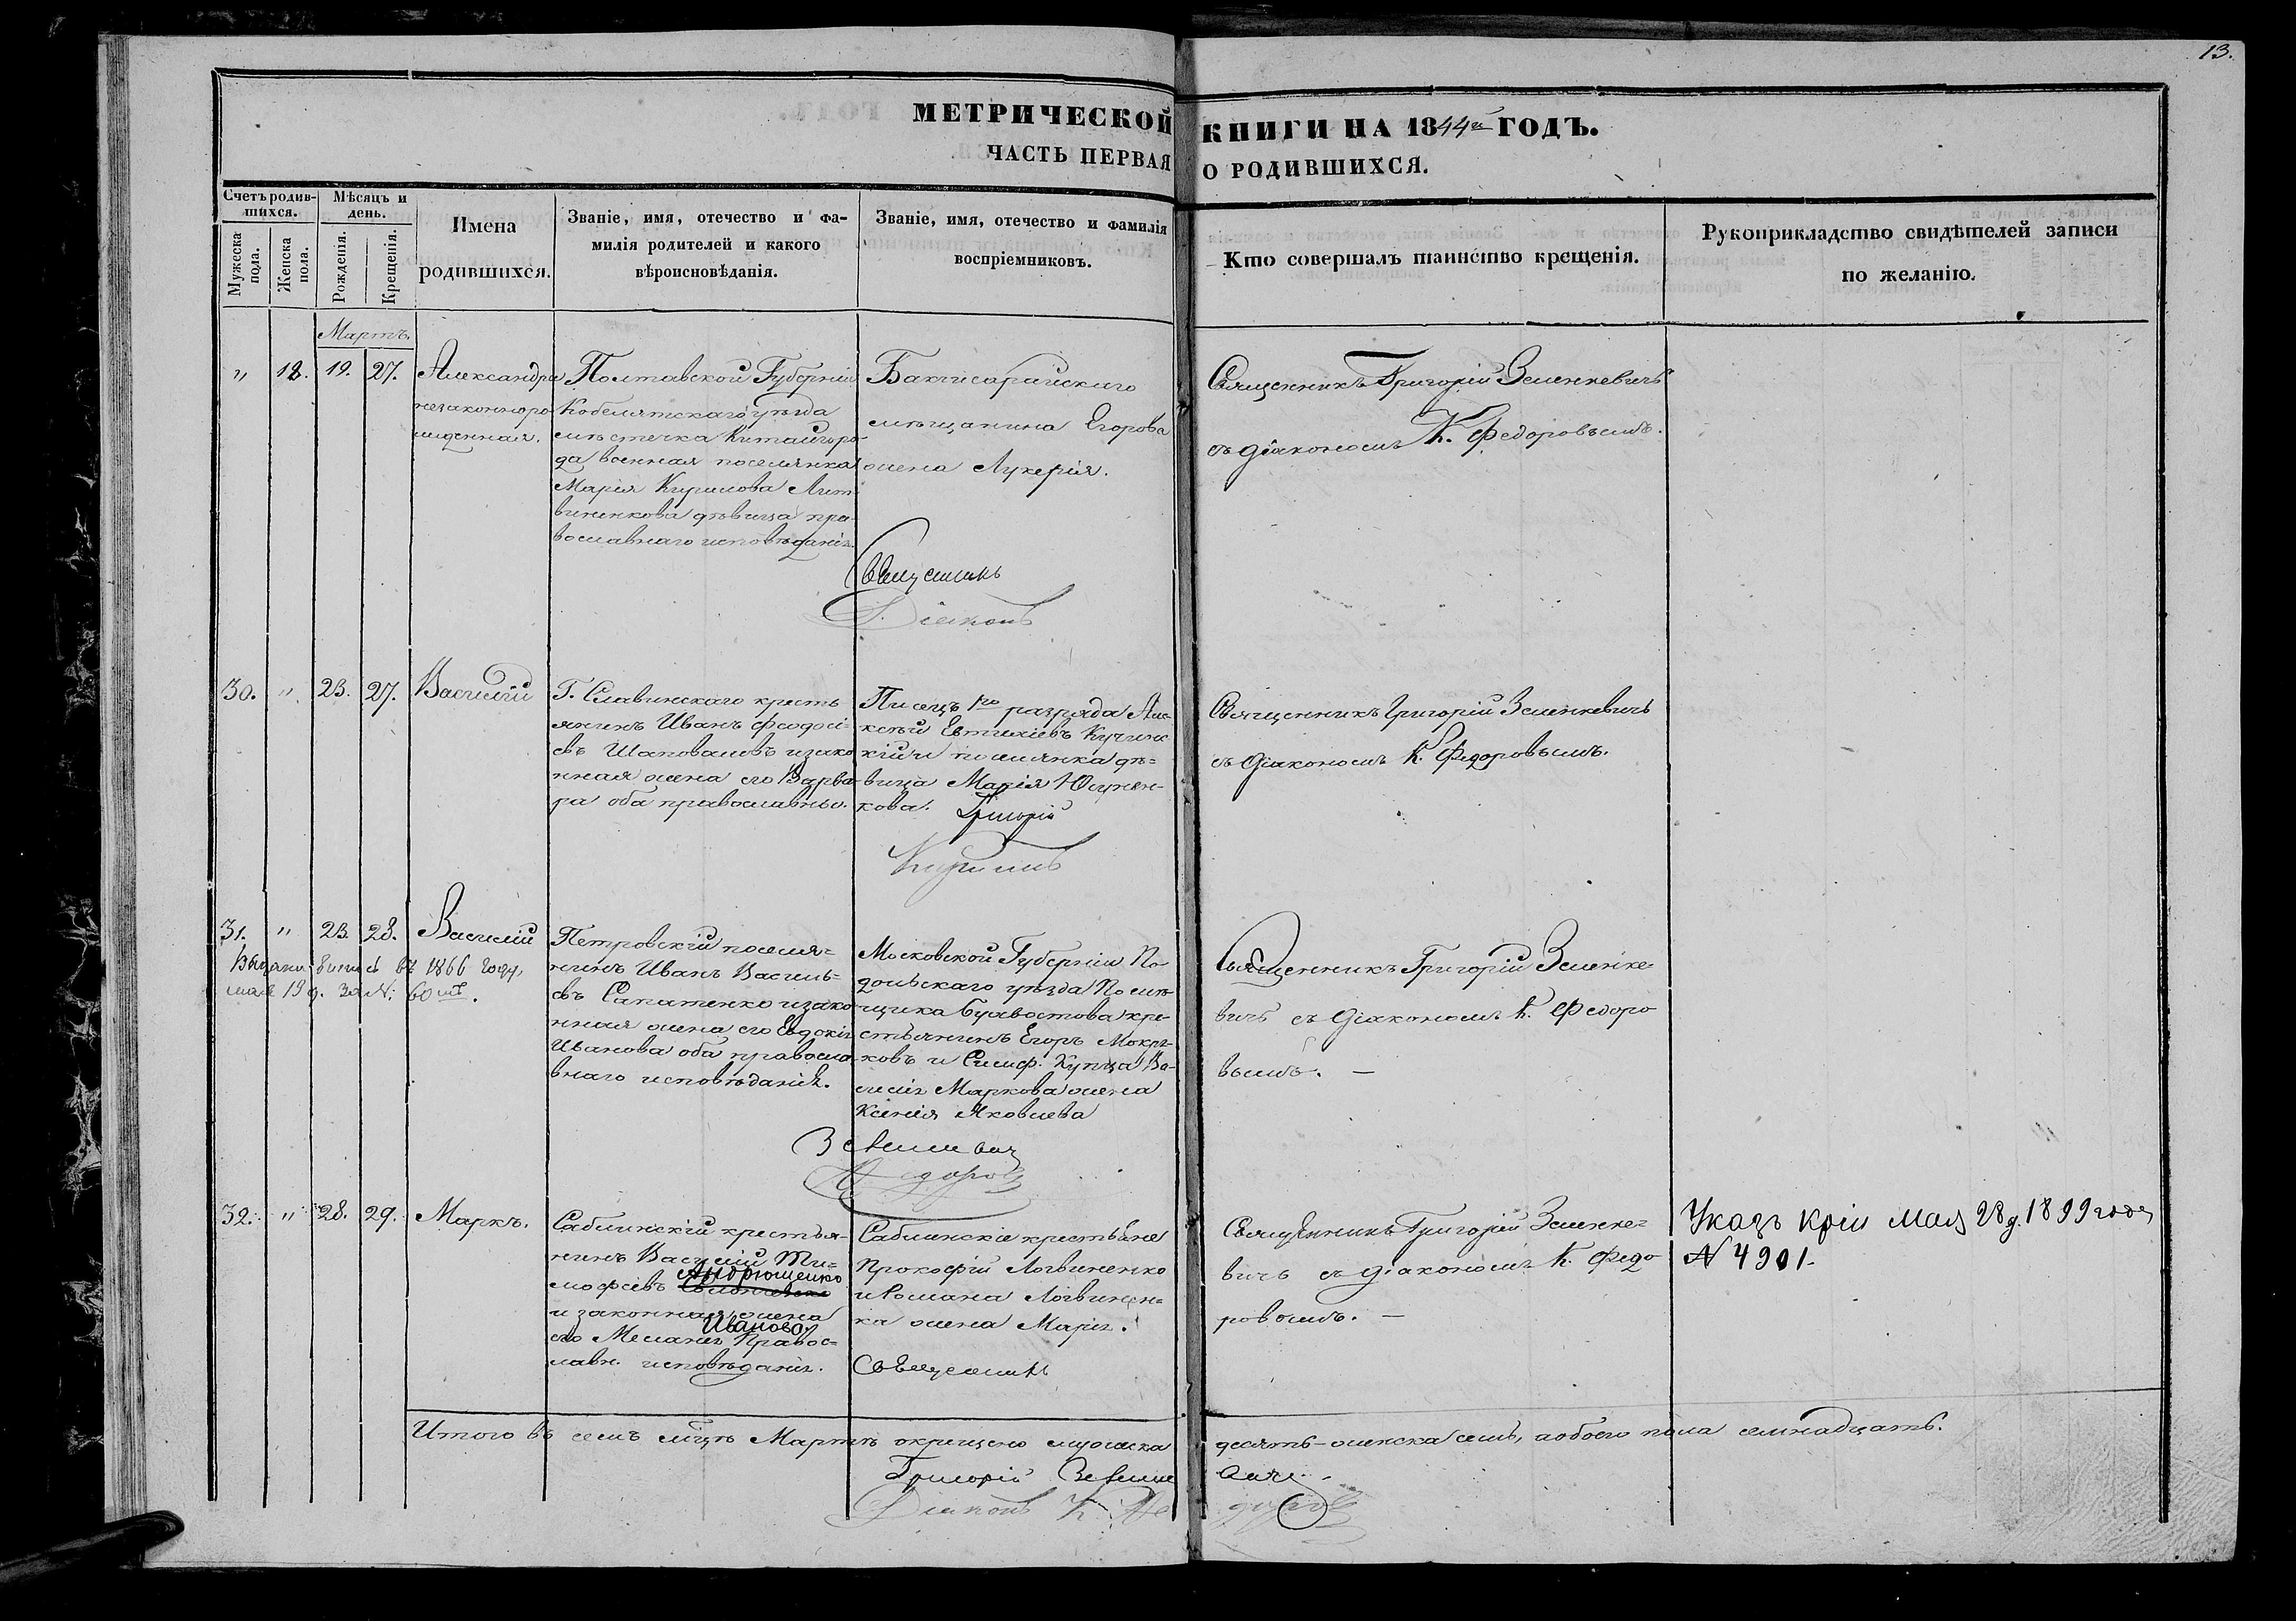 13.
МЕТРИЧЕСКОЙ КНИГИ НА 1844й ГОДЪ.
ЧАСТЬ ПЕРВАЯ О РОДИВШИХСЯ.
Счетъ родив-
шихся.
Мужеска
пола.
Женска
пола.
Мѣсяцъ и
день.
Рожденія.
Крещенія.
Имена
родившихся.
Званіе, имя, отечество и фа-
милія родителей и какого
вѣроисповѣданія.
Званіе, имя, отечество и фамилія
воспріемниковъ.
Кто совершалъ таинство крещенія.
Рукоприкладство свидѣтелей записи
по желанію.
Мартъ.
" 18. 19. 27.
Александра
незаконноро
жденная.
Полтавской Губерніи
Кобелятскаго уѣзда
мѣстечка Китайгоро-
да военная поселянка
Марія Кирилова Лит
виненкова дѣвица пра-
вославнаго исповѣданія.
Бахчисарайскаго
мѣщанина Егорова
жена Лукерія.
Священникъ
Діаконъ
Священникъ Григорій Зеленкевичъ
съ діакономъ К. Федоровымъ.
30. " 23. 27.
Василій
Г. Славинскаго кресть
янинъ Иванъ Феодосі-
евъ Шаповаловъ и зако
нная жена его Варва
ра оба православны.
Писецъ 1го разряда Але-
ксѣй Евтихіевъ Кучинс
кій и поселянка дѣ-
вица Марія
кова.
Григорій
Кирилъ
Священникъ Григорій Зеленкевичъ
съ діакономъ К. Федоровымъ.
31. " 23. 28.
въ 1866 году,
мая 19 д. за N: 60мъ.
Василій
Петровскій поселя-
нинъ Иванъ Василь-
евъ Сапатенко и зако
нная жена его Евдокія
Иванова оба правосла
внаго исповѣданія.
Московской Губерніи По
дольскаго уѣзда Помѣ
щика Буавостова кре-
стьянинъ Егоръ Мокря-
ковъ и Симф. Купца Ва-
силія Маркова жена
Ксенія Яковлева
Зеленкевичъ
Федоровъ
Священникъ Григорій Зеленке-
вичъ съ діакономъ К. Федоро
вымъ. —
32. " 28. 29.
Маркъ.
Саблинскій крестья-
нинъ Василій Ти-
мофеевъ Андрющенко
и законная жена
его Меланія Иванова Правос-
лавн. исповѣданія.
Саблинскіе крестьяне
Прокофій Логвиненко
и Романа Логвинен-
ка жена Марія.
Священникъ
Священникъ Григорій Зеленке-
вичъ съ діакономъ К. Федо
ровымъ. —
Указъ Кон. Мая 28 д. 1899 года
N 4901.
Итого въ семъ мцѣ Мартѣ окрещено мужеска десять - женска семь, а обоего пола семнадцать.
Григорій Зеленкевичъ
Діаконъ К. Федоровъ